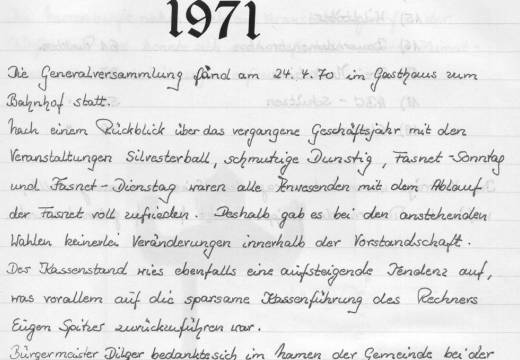 1971
Die Generalversammlung fand am 24.4.70 im Gasthaus zum
Bahnhof statt.
Nach einem Rückblick über das vergangene Geschäftsjahr mit den
Veranstaltungen Silvesterball, schmutzige Dunstig, Fasnet-Sonntag
und Fasnet-Dienstag waren alle Anwesenden mit dem Ablauf
der Fasnet voll zufrieden. Deshalb gab es bei den anstehenden
Wahlen keinerlei Veränderungen innerhalb der Vorstandschaft.
Der Kassenstand wies ebenfalls eine aufsteigende Tendenz auf,
was vorallem auf die sparsame Kassenführung des Rechners
Eugen Spitzer zurückzuführen war.
Bürgermeister Dilger bedankte sich im Namen der Gemeinde bei der